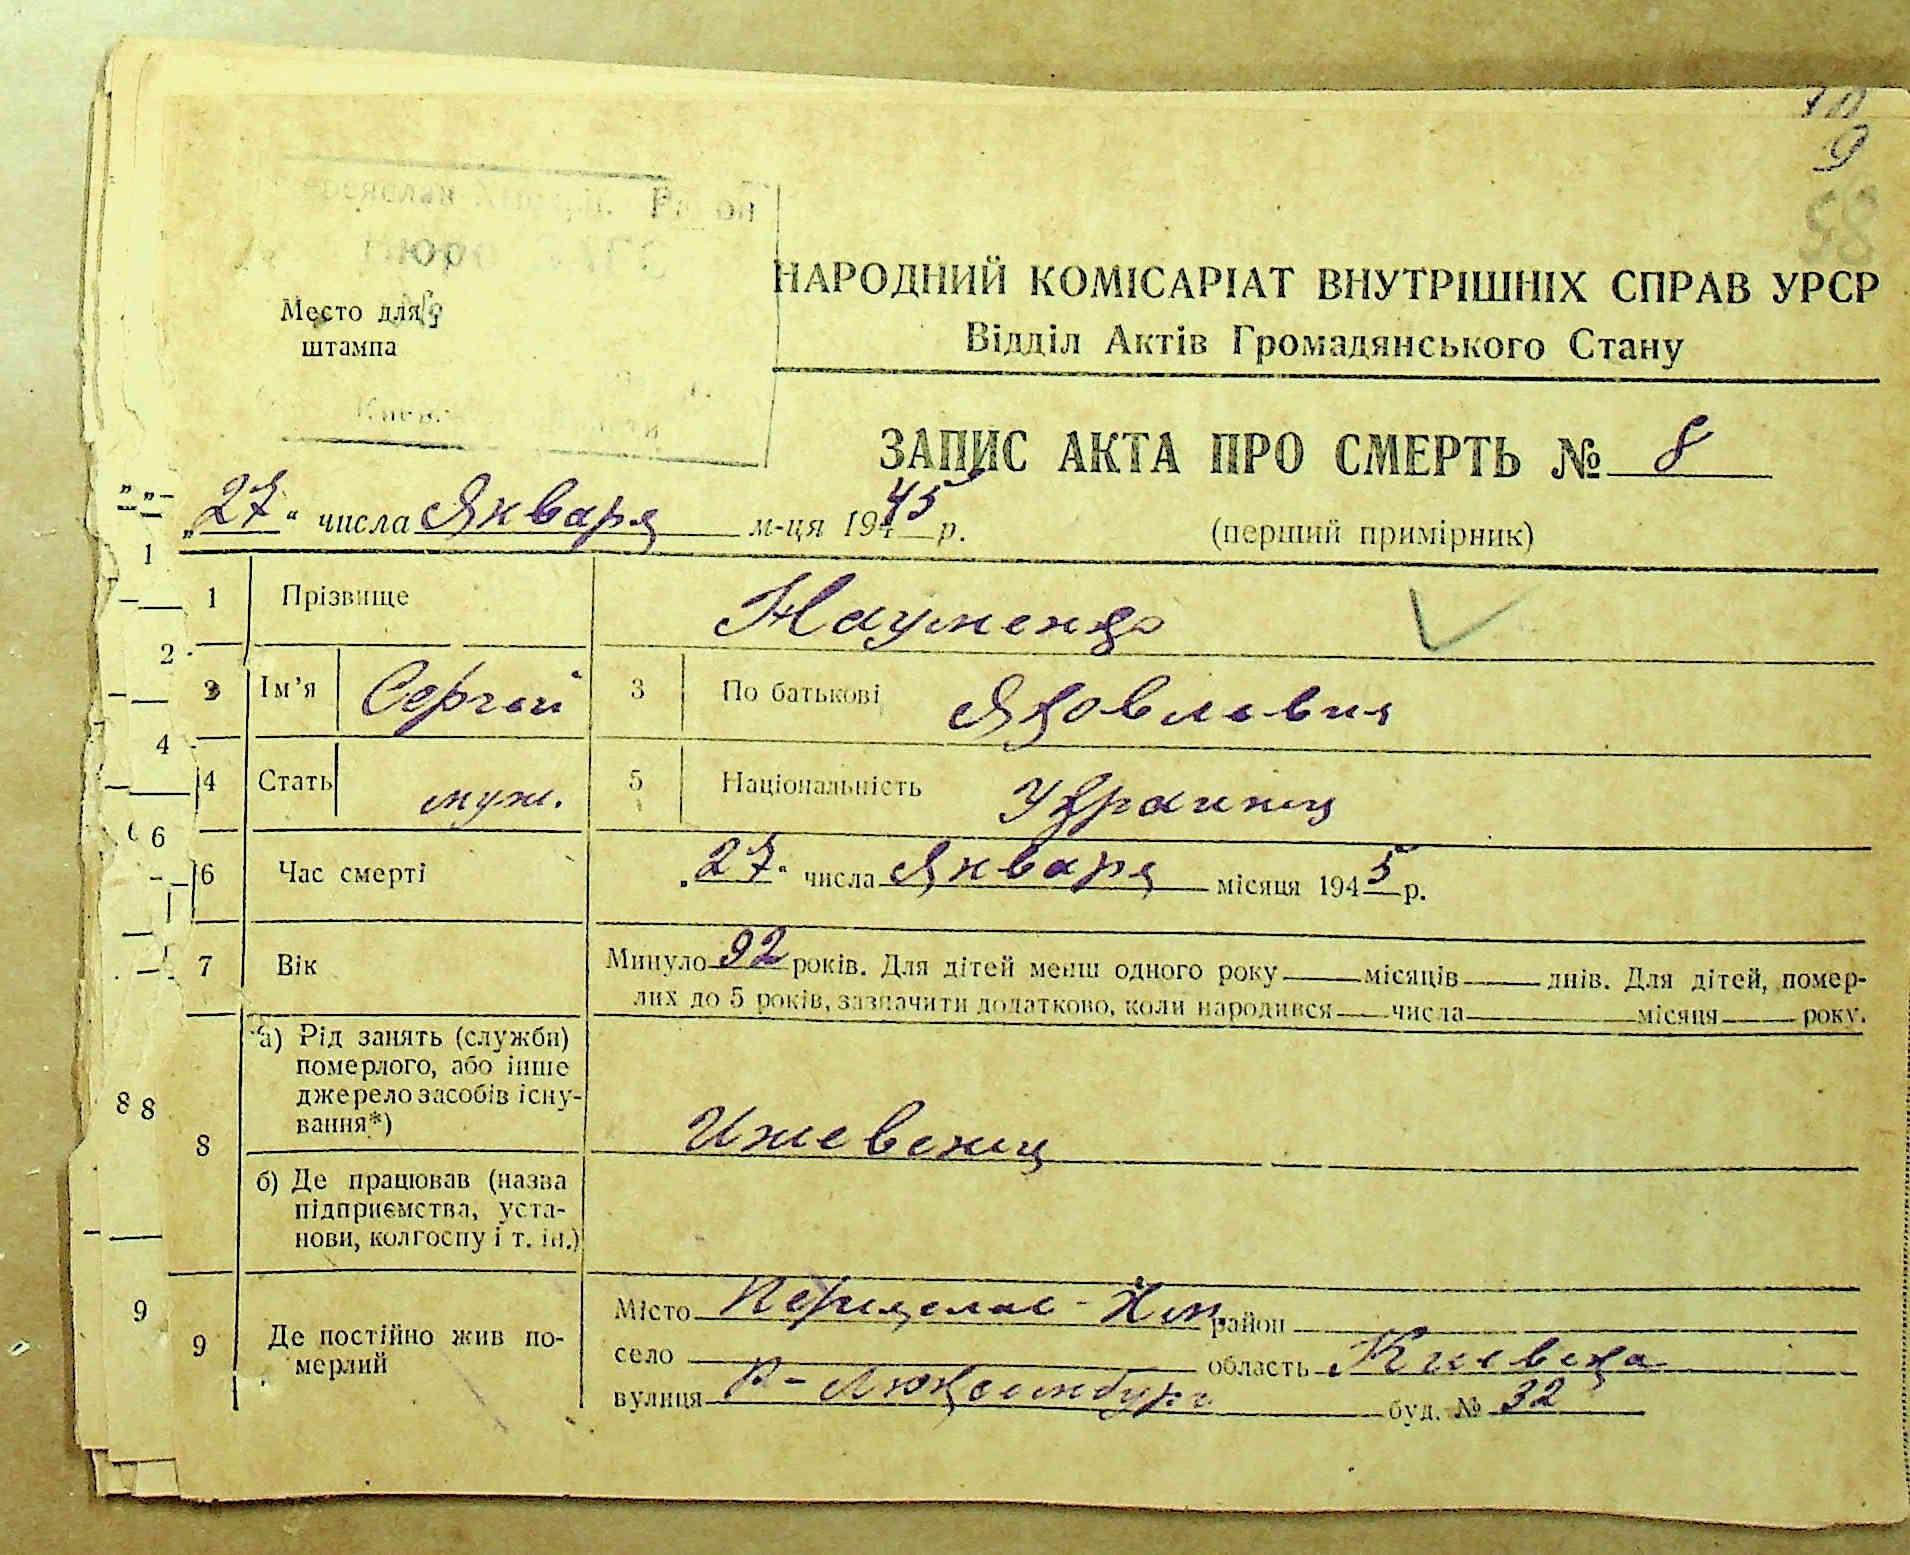 9
58
Место для
штампа
НАРОДНИЙ КОМІСАРІАТ ВНУТРІШНІХ СПРАВ УРСР
Відділ Актів Громадянського Стану
ЗАПИС АКТА ПРО СМЕРТЬ № 8
„27“ числа Января м-ця 1945 р.
(перший примірник)
1 Прізвище Науменко
2 Ім'я Сергей 3 По батькові Яковлевич
4 Стать муж. 5 Національність Украинец
6 Час смерті „27“ числа Января місяця 1945 р.
7 Вік Минуло 92 років. Для дітей менш одного року місяців днів. Для дітей, помер-
лих до 5 років, зазначити додатково, коли народився числа місяця року.
8 а) Рід занять (служби)
померлого, або інше
джерело засобів існу-
вання*)
Иждевенец
б) Де працював (назва
підприємства, уста-
нови, колгоспу і т. ін.)
9 Де постійно жив по-
мерлий
Місто Переяслав-Хм. район
село область Киевска
вулиця Р-Люксембург буд. № 32